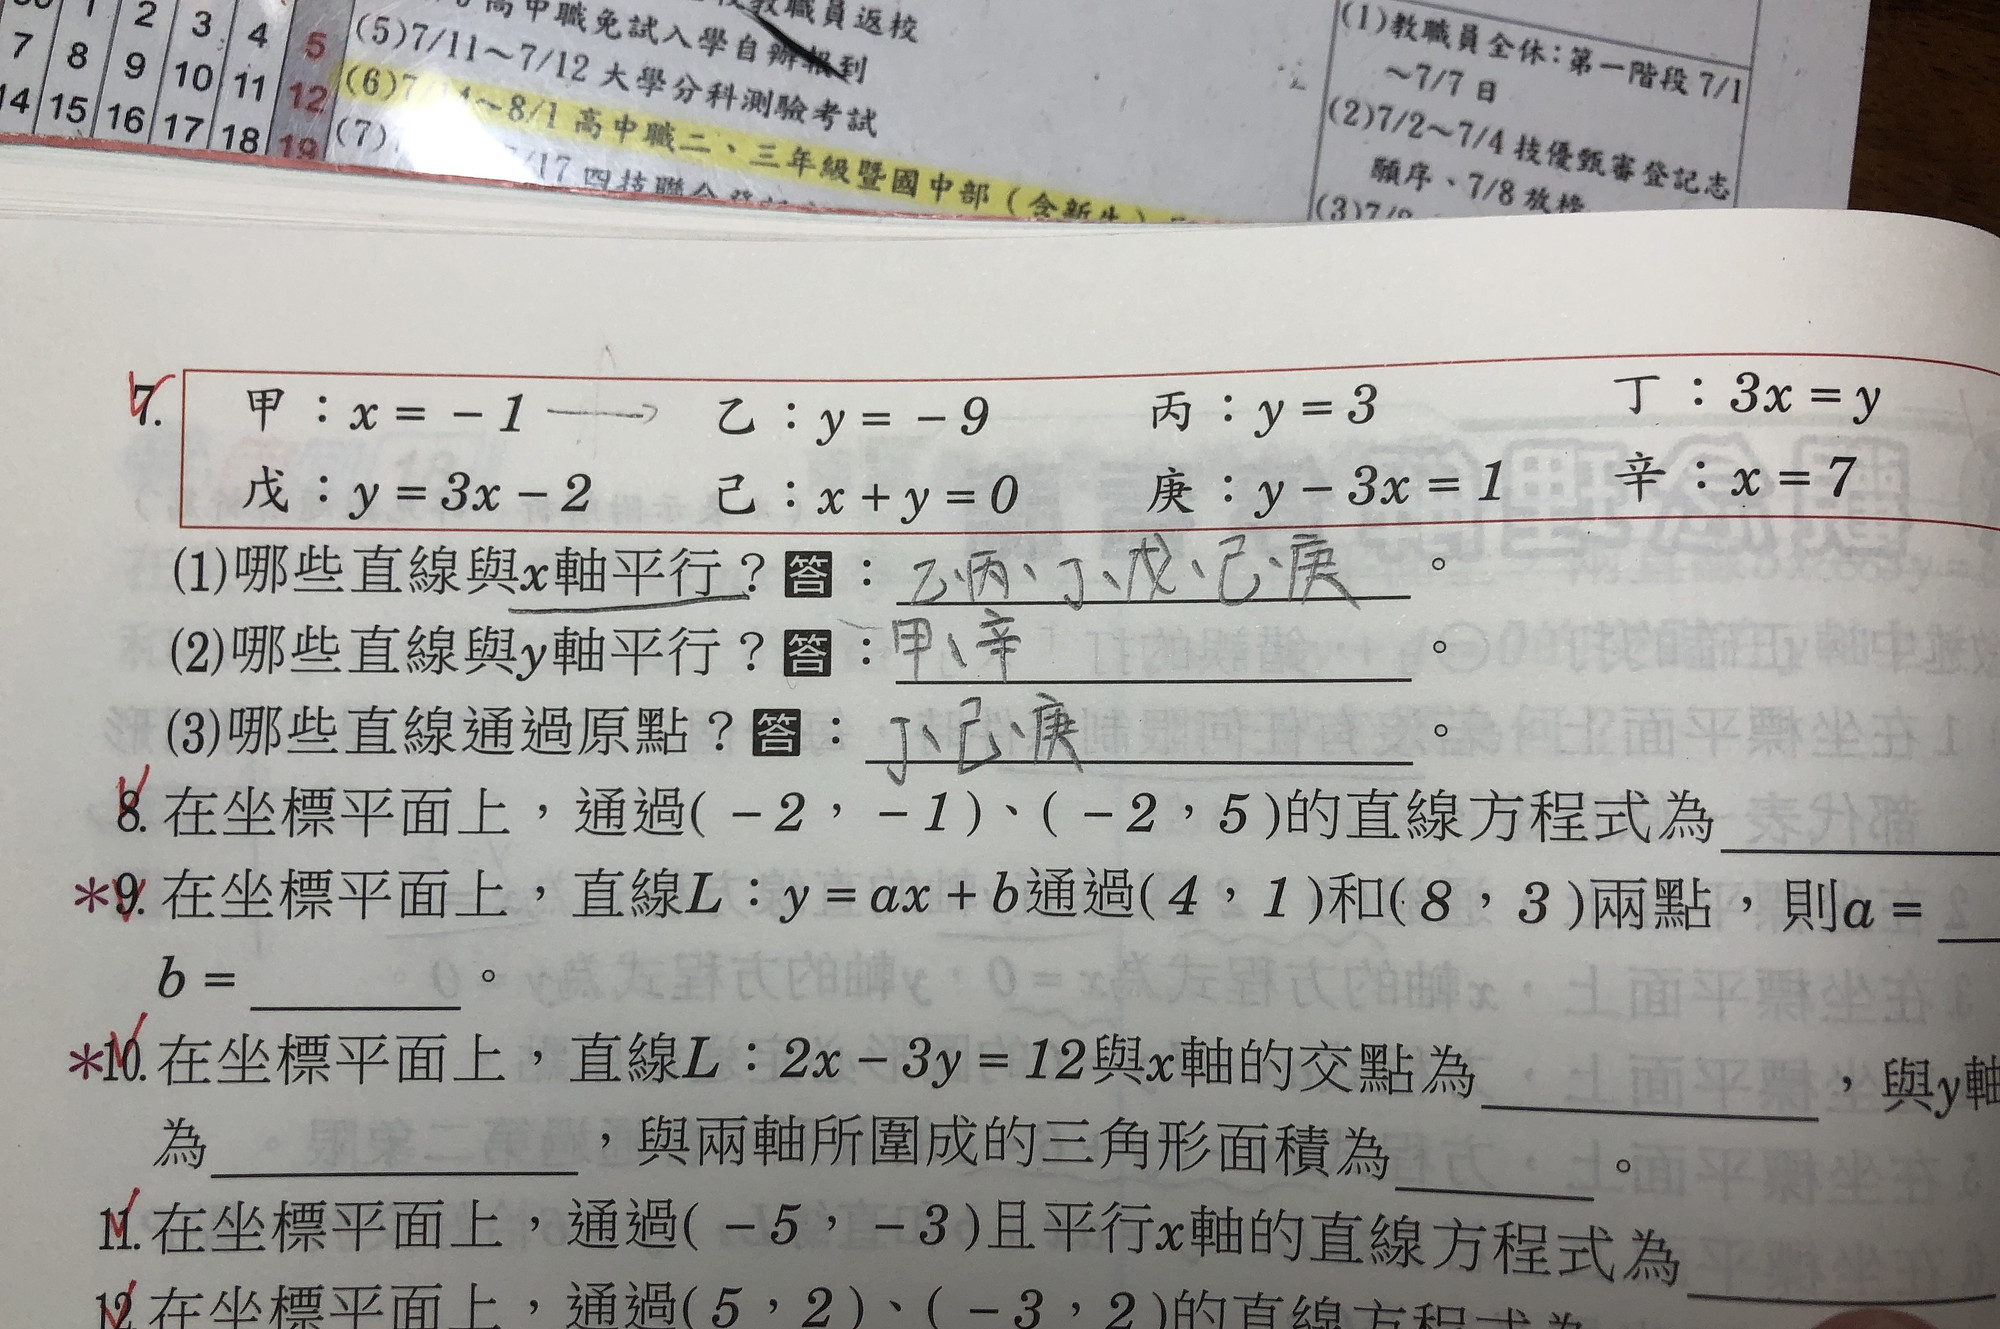 1 2 3 4 5
7 8 9 10 11 12
14 15 16 17 18 19
高中職免試入學自辦報到
教職員返校
(5)7/11～7/12 大學分科測驗考試
(6)7 ～8/1 高中職二、三年級暨國中部(含新生)
(7) /17
(1)教職員全休：第一階段 7/1
～7/7 日
(2)7/2～7/4 技優甄審登記志
願序、7/8 放榜
(3)7/
7. 甲：x = －1 乙：y = －9 丙：y = 3 丁：3x = y
戊：y = 3x－2 己：x + y = 0 庚：y－3x = 1 辛：x = 7
(1)哪些直線與x軸平行？答：乙、丙、丁、戊、己、庚。
(2)哪些直線與y軸平行？答：甲、辛。
(3)哪些直線通過原點？答：丁、己、庚。
8. 在坐標平面上，通過(－2，－1)、(－2，5)的直線方程式為
＊9. 在坐標平面上，直線L：y = ax + b通過(4，1)和(8，3)兩點，則a =
b = 。
＊10. 在坐標平面上，直線L：2x－3y = 12與x軸的交點為 ，與y軸
為 ，與兩軸所圍成的三角形面積為 。
11. 在坐標平面上，通過(－5，－3)且平行x軸的直線方程式為
12. 在坐標平面上，通過(5，2)、(－3，2)的直線方程式為